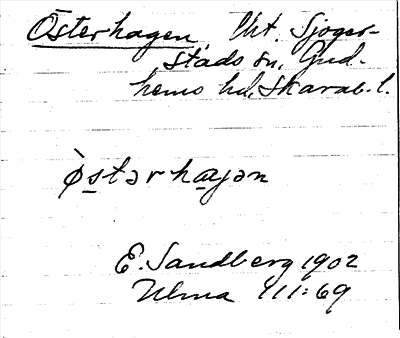 Österhagen Utt. Sjoger-
stads sn, Gud-
hems hd, Skarab. l.
østərhaɡən
E. Sandberg 1902
Ulma 111:69